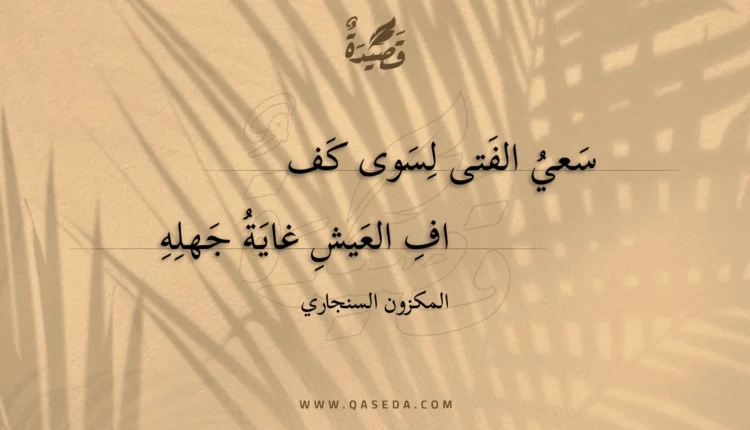 قَصِيْدَةٌ
سَعيُ الفَتى لِسَوى كَف
افِ العَيشِ غايَةُ جَهلِهِ
المكزون السنجاري
WWW.QASEDA.COM